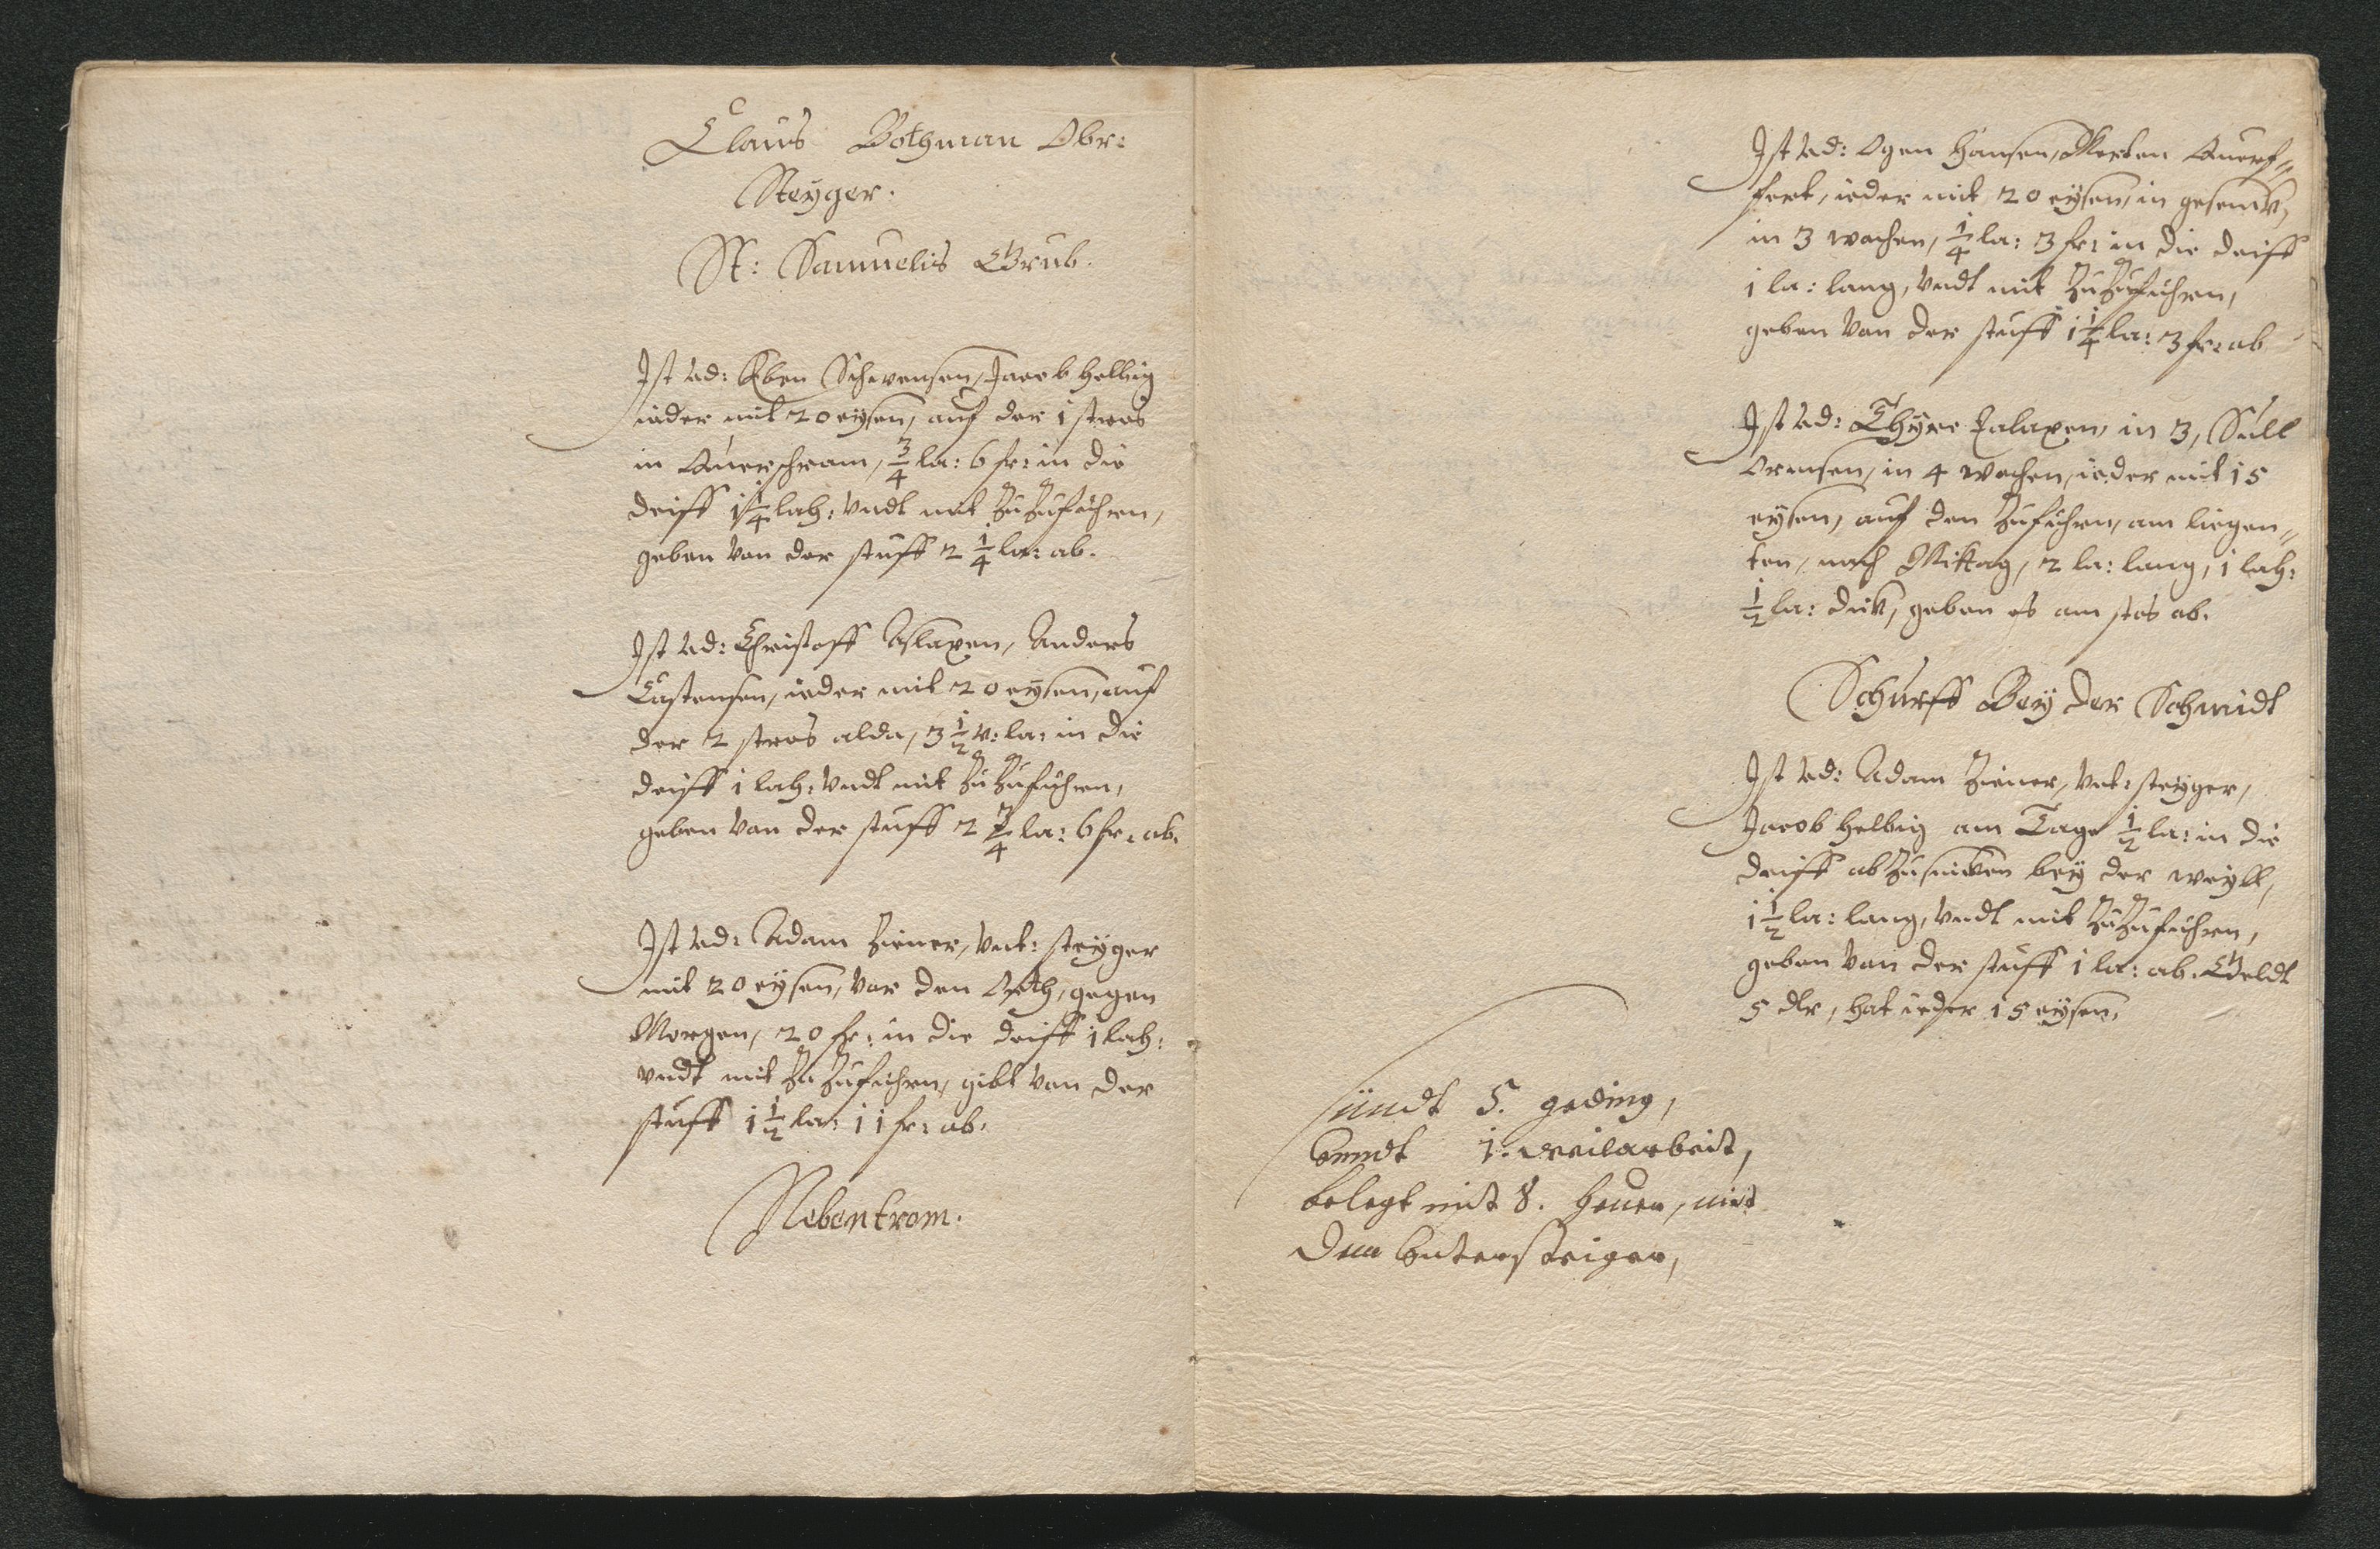 Claus Bothman Obr:
Steyger.
St: Samuelis Grub.
Ist vd: Eben Schwensen, Jacob Helbig
ieder mit 20 eysen, auf der 1 stros
in Querschram, 3/4 la: 6 fr: in die
deiff 1 1/4 lah: vndt mit Zu Zufuhren,
geben von der stuff 2 1/4 la: ab.
Ist vd: Christoff Aslaxen, Anders
Castensen, ieder mit 20 eysen, auf
der 2 stros alda, 3 1/2 v: la: in die
deiff 1 lah: vndt mit Zu Zufuhren,
geben von der stuff 2 3/4 la: 6 fr: ab.
Ist vd: Adam Ziener, Vnt: steyger
mit 20 eysen, vor den Orth, gegen
Morgen, 20 fr: in die deiff 1 lah:
vndt mit Zu Zufuhren, gibt von der
stuff 1 1/2 la: 11 fr: ab.
Nebentrom.
Ist vd: Ogen Hansen, Merten Querf=
fert, ieder mit 20 eysen, in gesenk,
in 3 wochen, 1/4 la: 3 fr: in die deiff
1 la: lang, vndt mit Zu Zufuhren,
geben von der stuff 1 1/4 la: 3 fr: ab
Ist vd: Thyre in 3,
in 4 wochen, ieder mit 15
eysen, auf den Zufuhren, am liegen=
ten, nach Mittag, 2 la: lang, 1 lah:
1/2 la: dick, geben es am stos ab.
Schurff Bey der Schmidt
Ist vd: Adam Ziener, Vnt: steyger,
Jacob Helbig am Tage 1/2 la: in die
deiff abZusincken bey der weyll,
1 1/2 la: lang, vndt mit Zu Zufuhren,
geben von der stuff 1 la: ab. Geldt
5 dlr, hat ieder 15 eysen.
sündt 5. geding,
vnndt 1. weilarbeit,
belegt mit 8. heuer, mit
dem Vntersteiger,